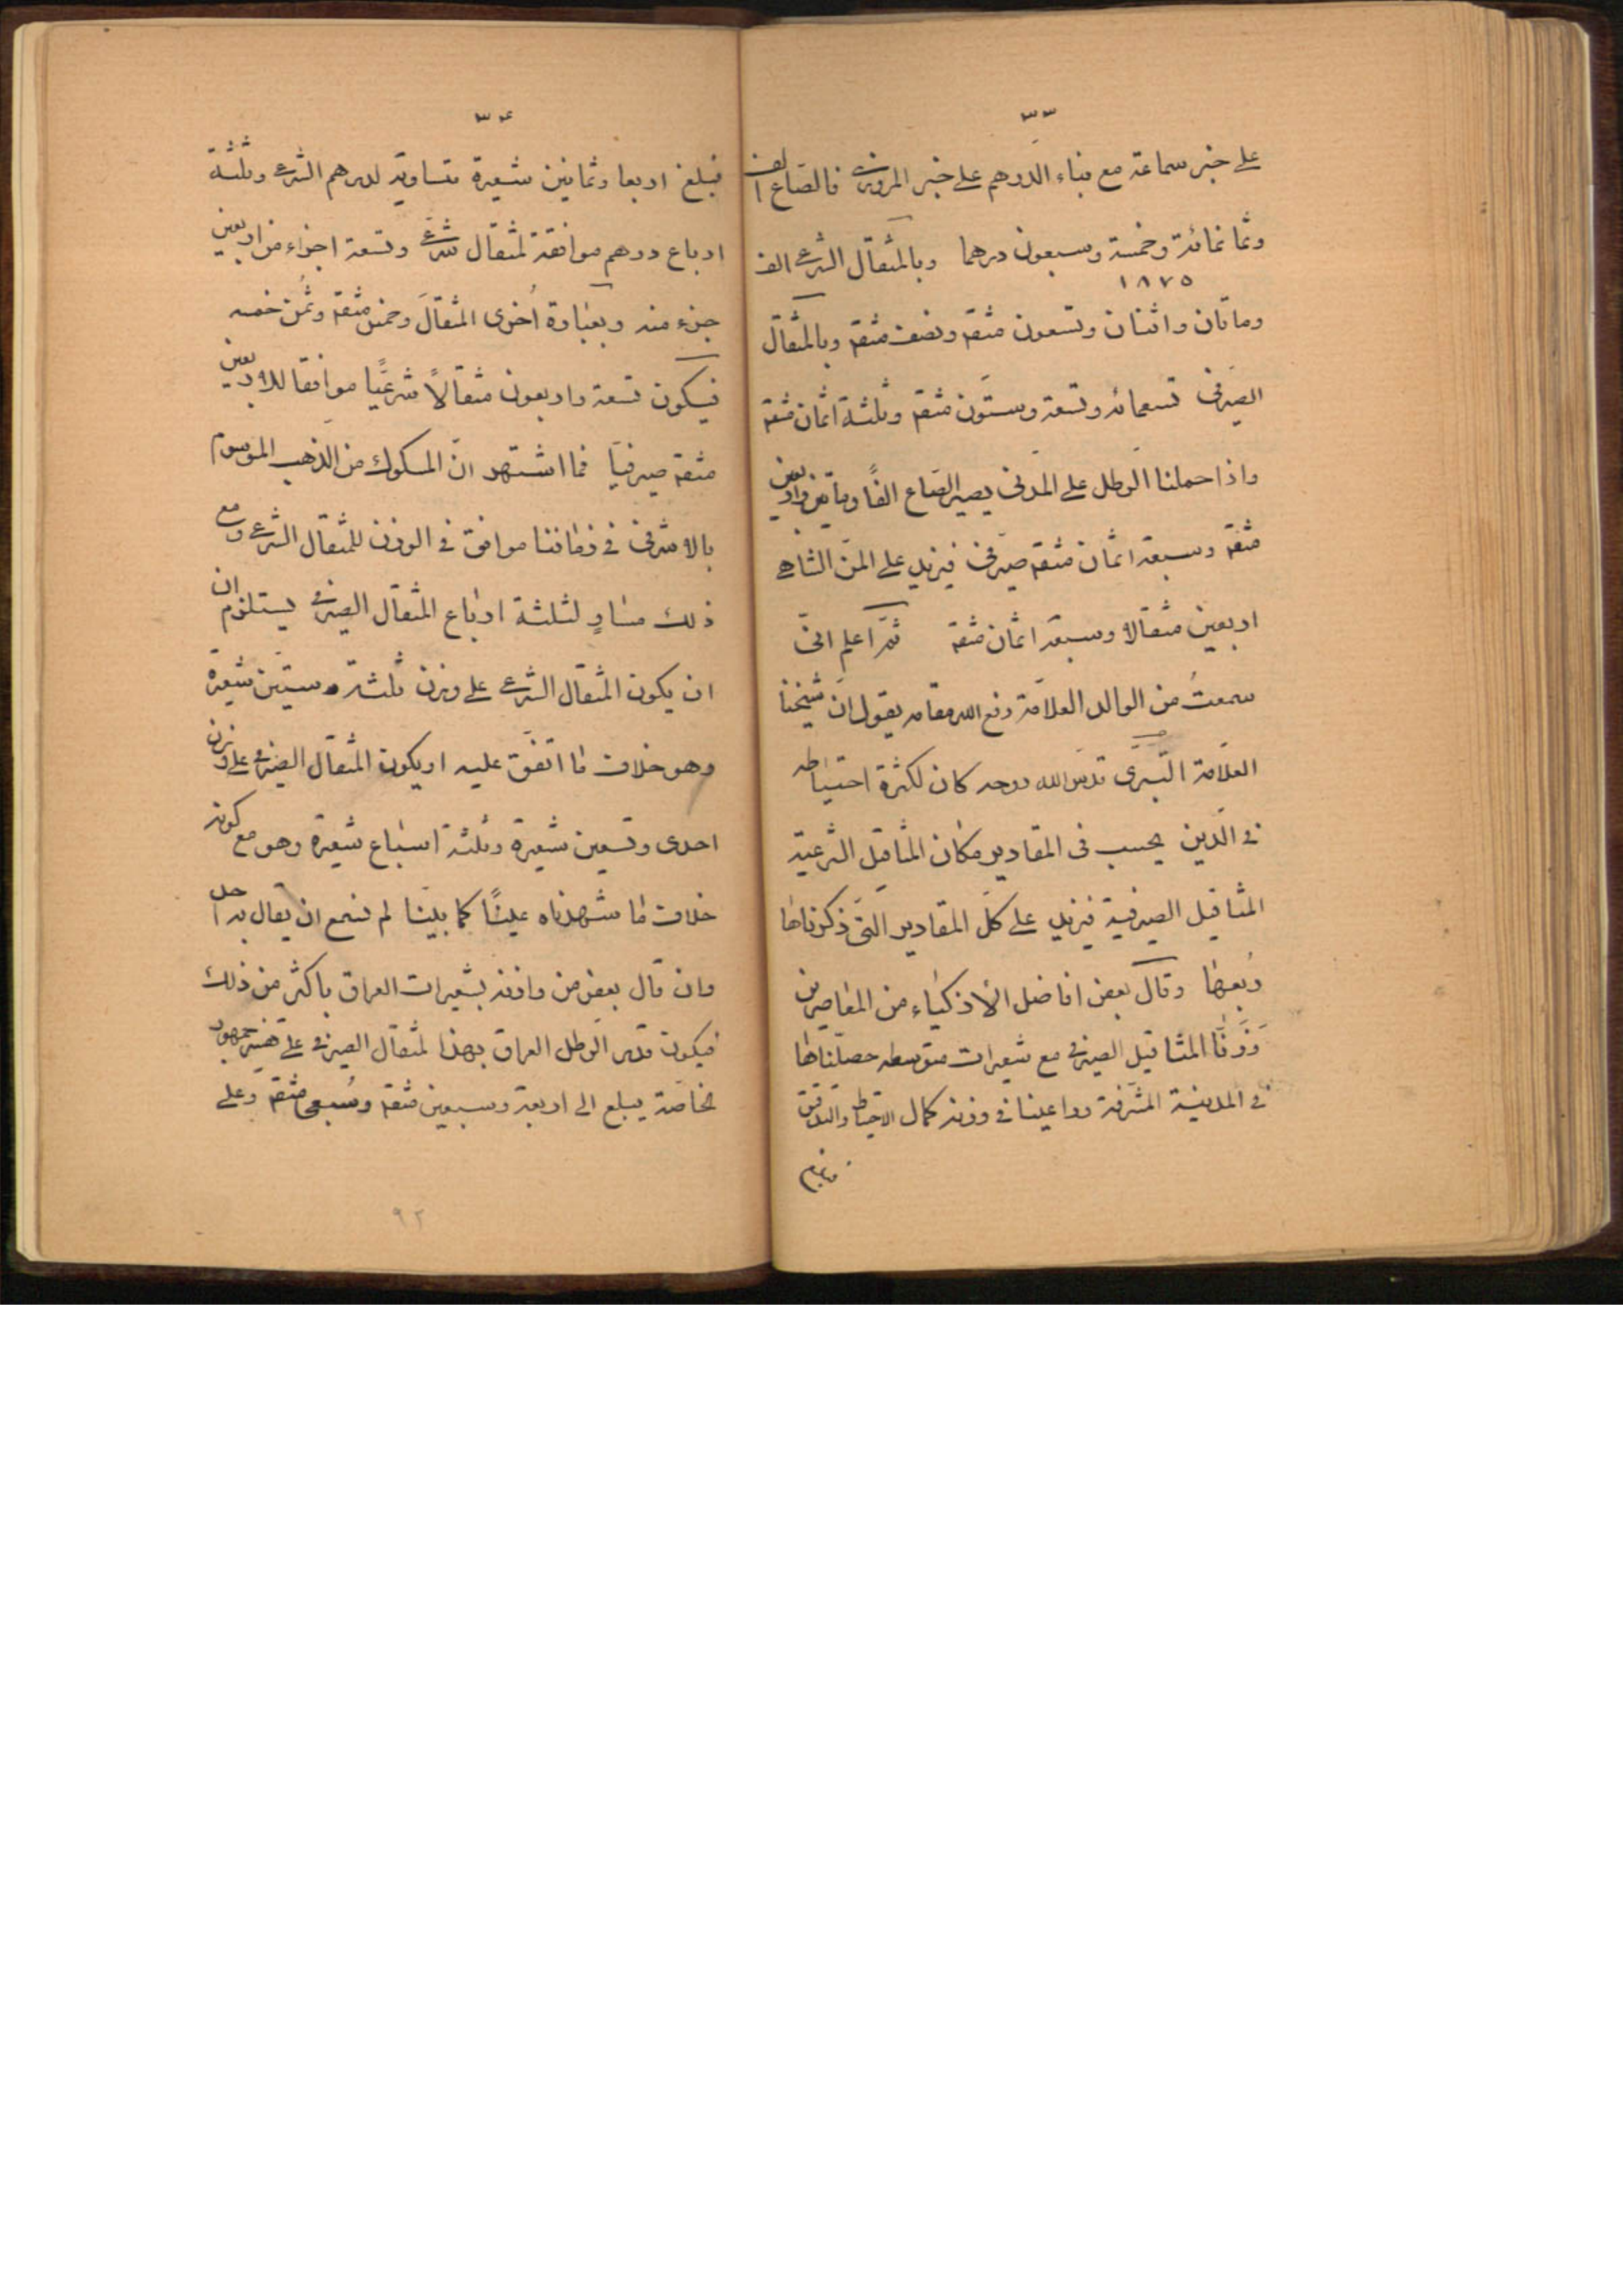 ٣٣
على خبر سماعة مع بناء الدرهم على خبر المروزى فالصاع الف
وثمانمائة وخمسة وسبعون درهما وبالمثقال الشرعى الف
١٨٧٥
ومائتان واثنان وتسعون مثقم ونصف مثقم وبالمثقال
الصيرفى تسعمائة وتسعة وستون مثقم وثلثة اثمان مثقم
واذا حملنا الرطل على المدنى يصير الصاع الفًا ومأتين واربعين
مثقم وسبعة اثمان مثقم صيرفى فيزيد على المن الشاهى
اربعين مثقالا وسبعة اثمان مثقم ثم اعلم انى
سمعتُ من الوالد العلامة رفع الله مقامه يقول ان شيخنا
العلامة قدس الله روحه كان لكثرة احتياطه
فى الدين يحسب فى المقادير مكان المثاقيل الشرعية
المثاقيل الصيرفية فيزيد على كل المقادير التى ذكرناها
رُبعها وقال بعض افاضل الأذكياء من المعاصرين
وَزَنّا المثاقيل الصيرفى مع شعيرات متوسطه حصلناها
فى المدينة المشرفة وراعينا فى وزنه كمال الاحتياط والتدقيق
٣٤
فبلغ اربعا وثمانين شعيرة مساوية لدرهم الشرعى وثلثة
ارباع درهم موافقة لمثقال شرعى وتسعة اجزاء من اربعين
جزء منه وبعبارة اُخرى المثقال وخمس مثقم وثُمن خمسه
فيكون تسعة واربعون مثقالاً شرعيًا موافقا للاربعين
مثقم صيرفيا فما اشتهر ان المسكوك من الذهب الموسوم
بالاشرفى فى زماننا موافق فى الوزن للمثقال الشرعى ومع
ذلك مساوٍ لثلثة ارباع المثقال الصيرفى يستلزم ان
ان يكون المثقال الشرعى على وزن ثلثة وستين شعيرة
وهو خلاف ما اتفق عليه او يكون المثقال الصيرفى على وزن
احدى وتسعين شعيرة وثلثة اسباع شعيرة وهو مع كونه
خلاف ما شهدناه عليًا كما بيّنا لم نسمع ان يقال به احد
وان قال بعض من وازنه بشعيرات العراق باكثر من ذلك
فيكون قدر الرطل العراقى بهذا لمثقال الصيرفى على جمهور
الخاصة يبلغ الى اربعة وسبعين مثقم وسُبعى مثقم وعلى
٩٢